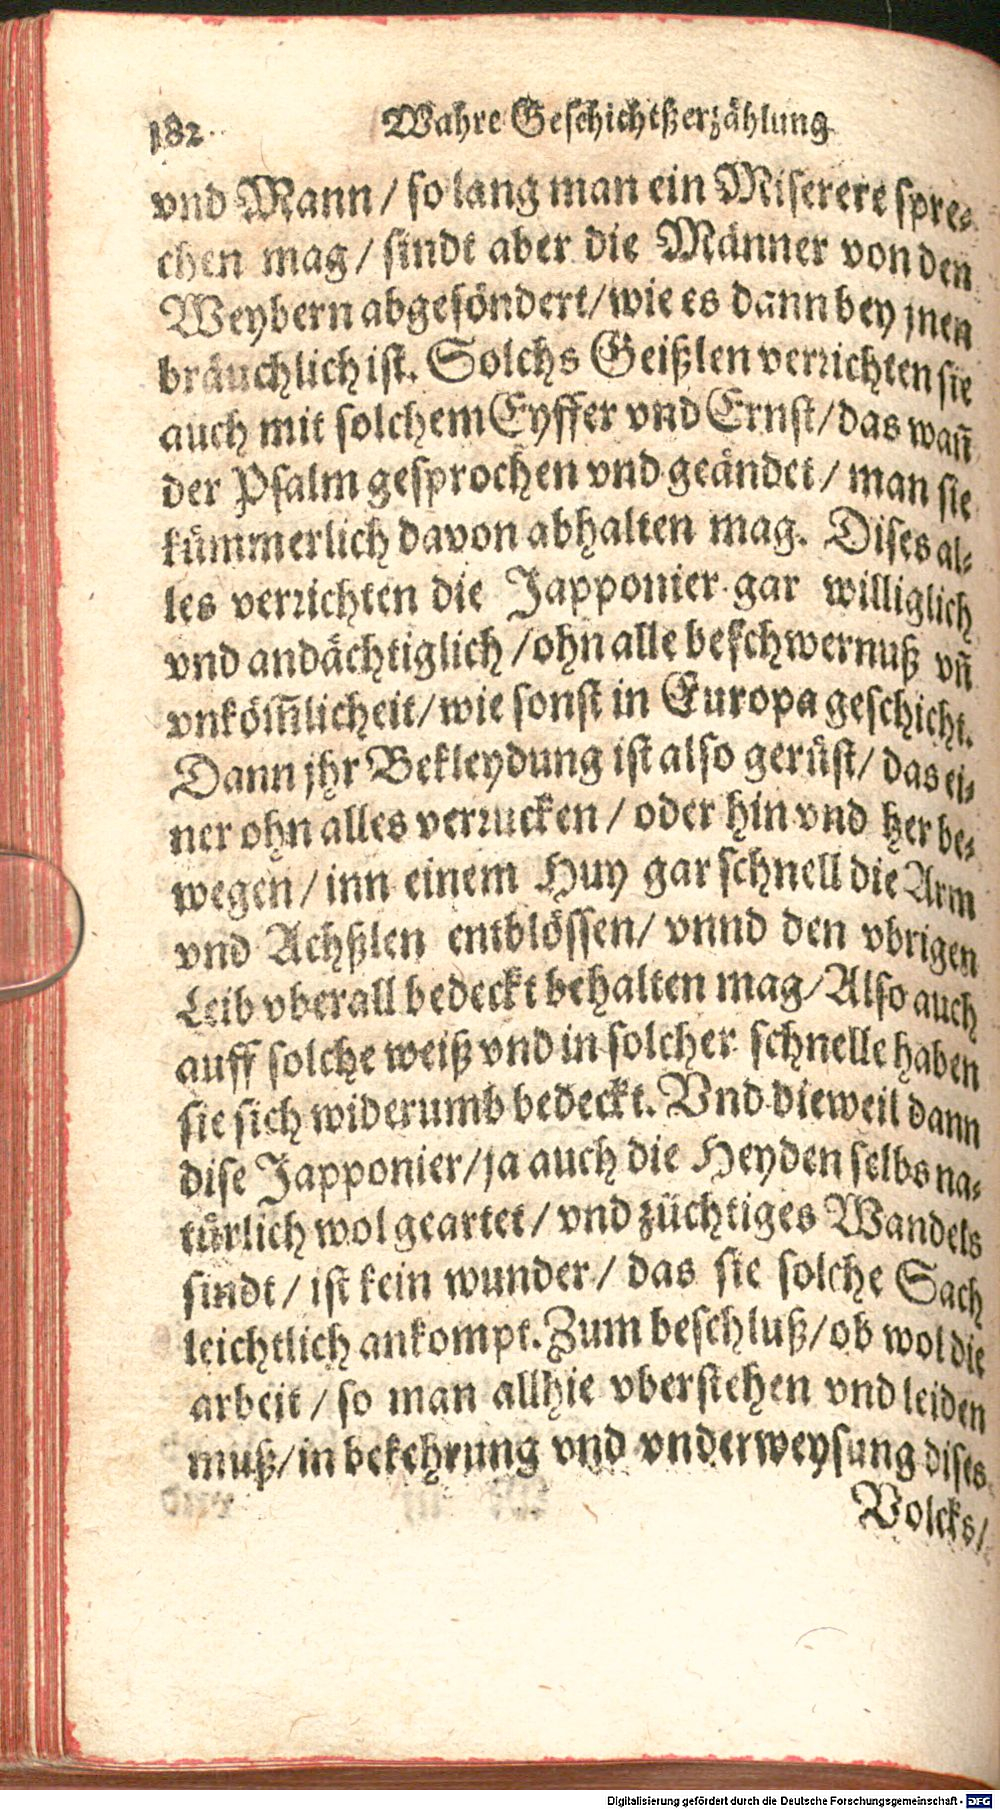 182 Wahre Geschichtßerzählung
vnd Mann / so lang man ein Miserere spre⸗
chen mag / sindt aber die Männer von den
Weybern abgesöndert / wie es dann bey jnen
bräuchlich ist. Solchs Geißlen verrichten sie
auch mit solchem Eyffer vnd Ernst / das wañ
der Psalm gesprochen vnd geändet / man sie
kümmerlich davon abhalten mag. Dises al⸗
les verrichten die Japponier gar williglich
vnd andächtiglich / ohn alle beschwernuß vñ
vnköm̃licheit / wie sonst in Europa geschicht.
Dann jhr Bekleydung ist also gerüst / das ei⸗
ner ohn alles verrucken / oder hin vnd her be⸗
wegen / inn einem Huy gar schnell die Arm
vnd Achßlen entblössen / vnnd den vbrigen
Leib vberall bedeckt behalten mag / Also auch
auff solche weiß vnd in solcher schnelle haben
sie sich widerumb bedeckt. Vnd dieweil dann
dise Japponier / ja auch die Heyden selbs na⸗
türlich wol geartet / vnd züchtiges Wandels
sindt / ist kein wunder / das sie solche Sach
leichtlich ankompt. Zum beschluß / ob wol die
arbeit / so man allhie vberstehen vnd leiden
muß / in bekehrung vnd vnderweysung dises
Volcks /
Digitalisierung gefördert durch die Deutsche Forschungsgemeinschaft - DFG